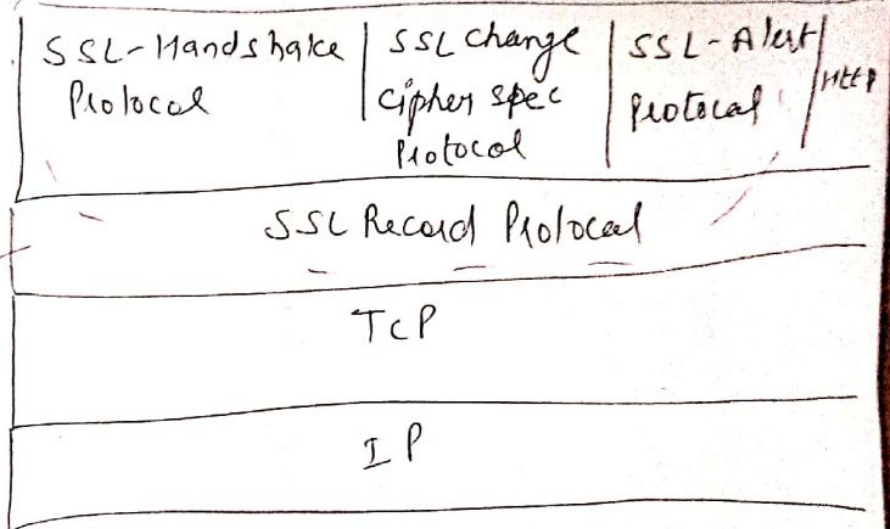 SSL-Handshake
Protocol
SSL Change
cipher spec
Protocol
SSL-Alert
Protocol
HTTP
SSL Record Protocol
TCP
IP